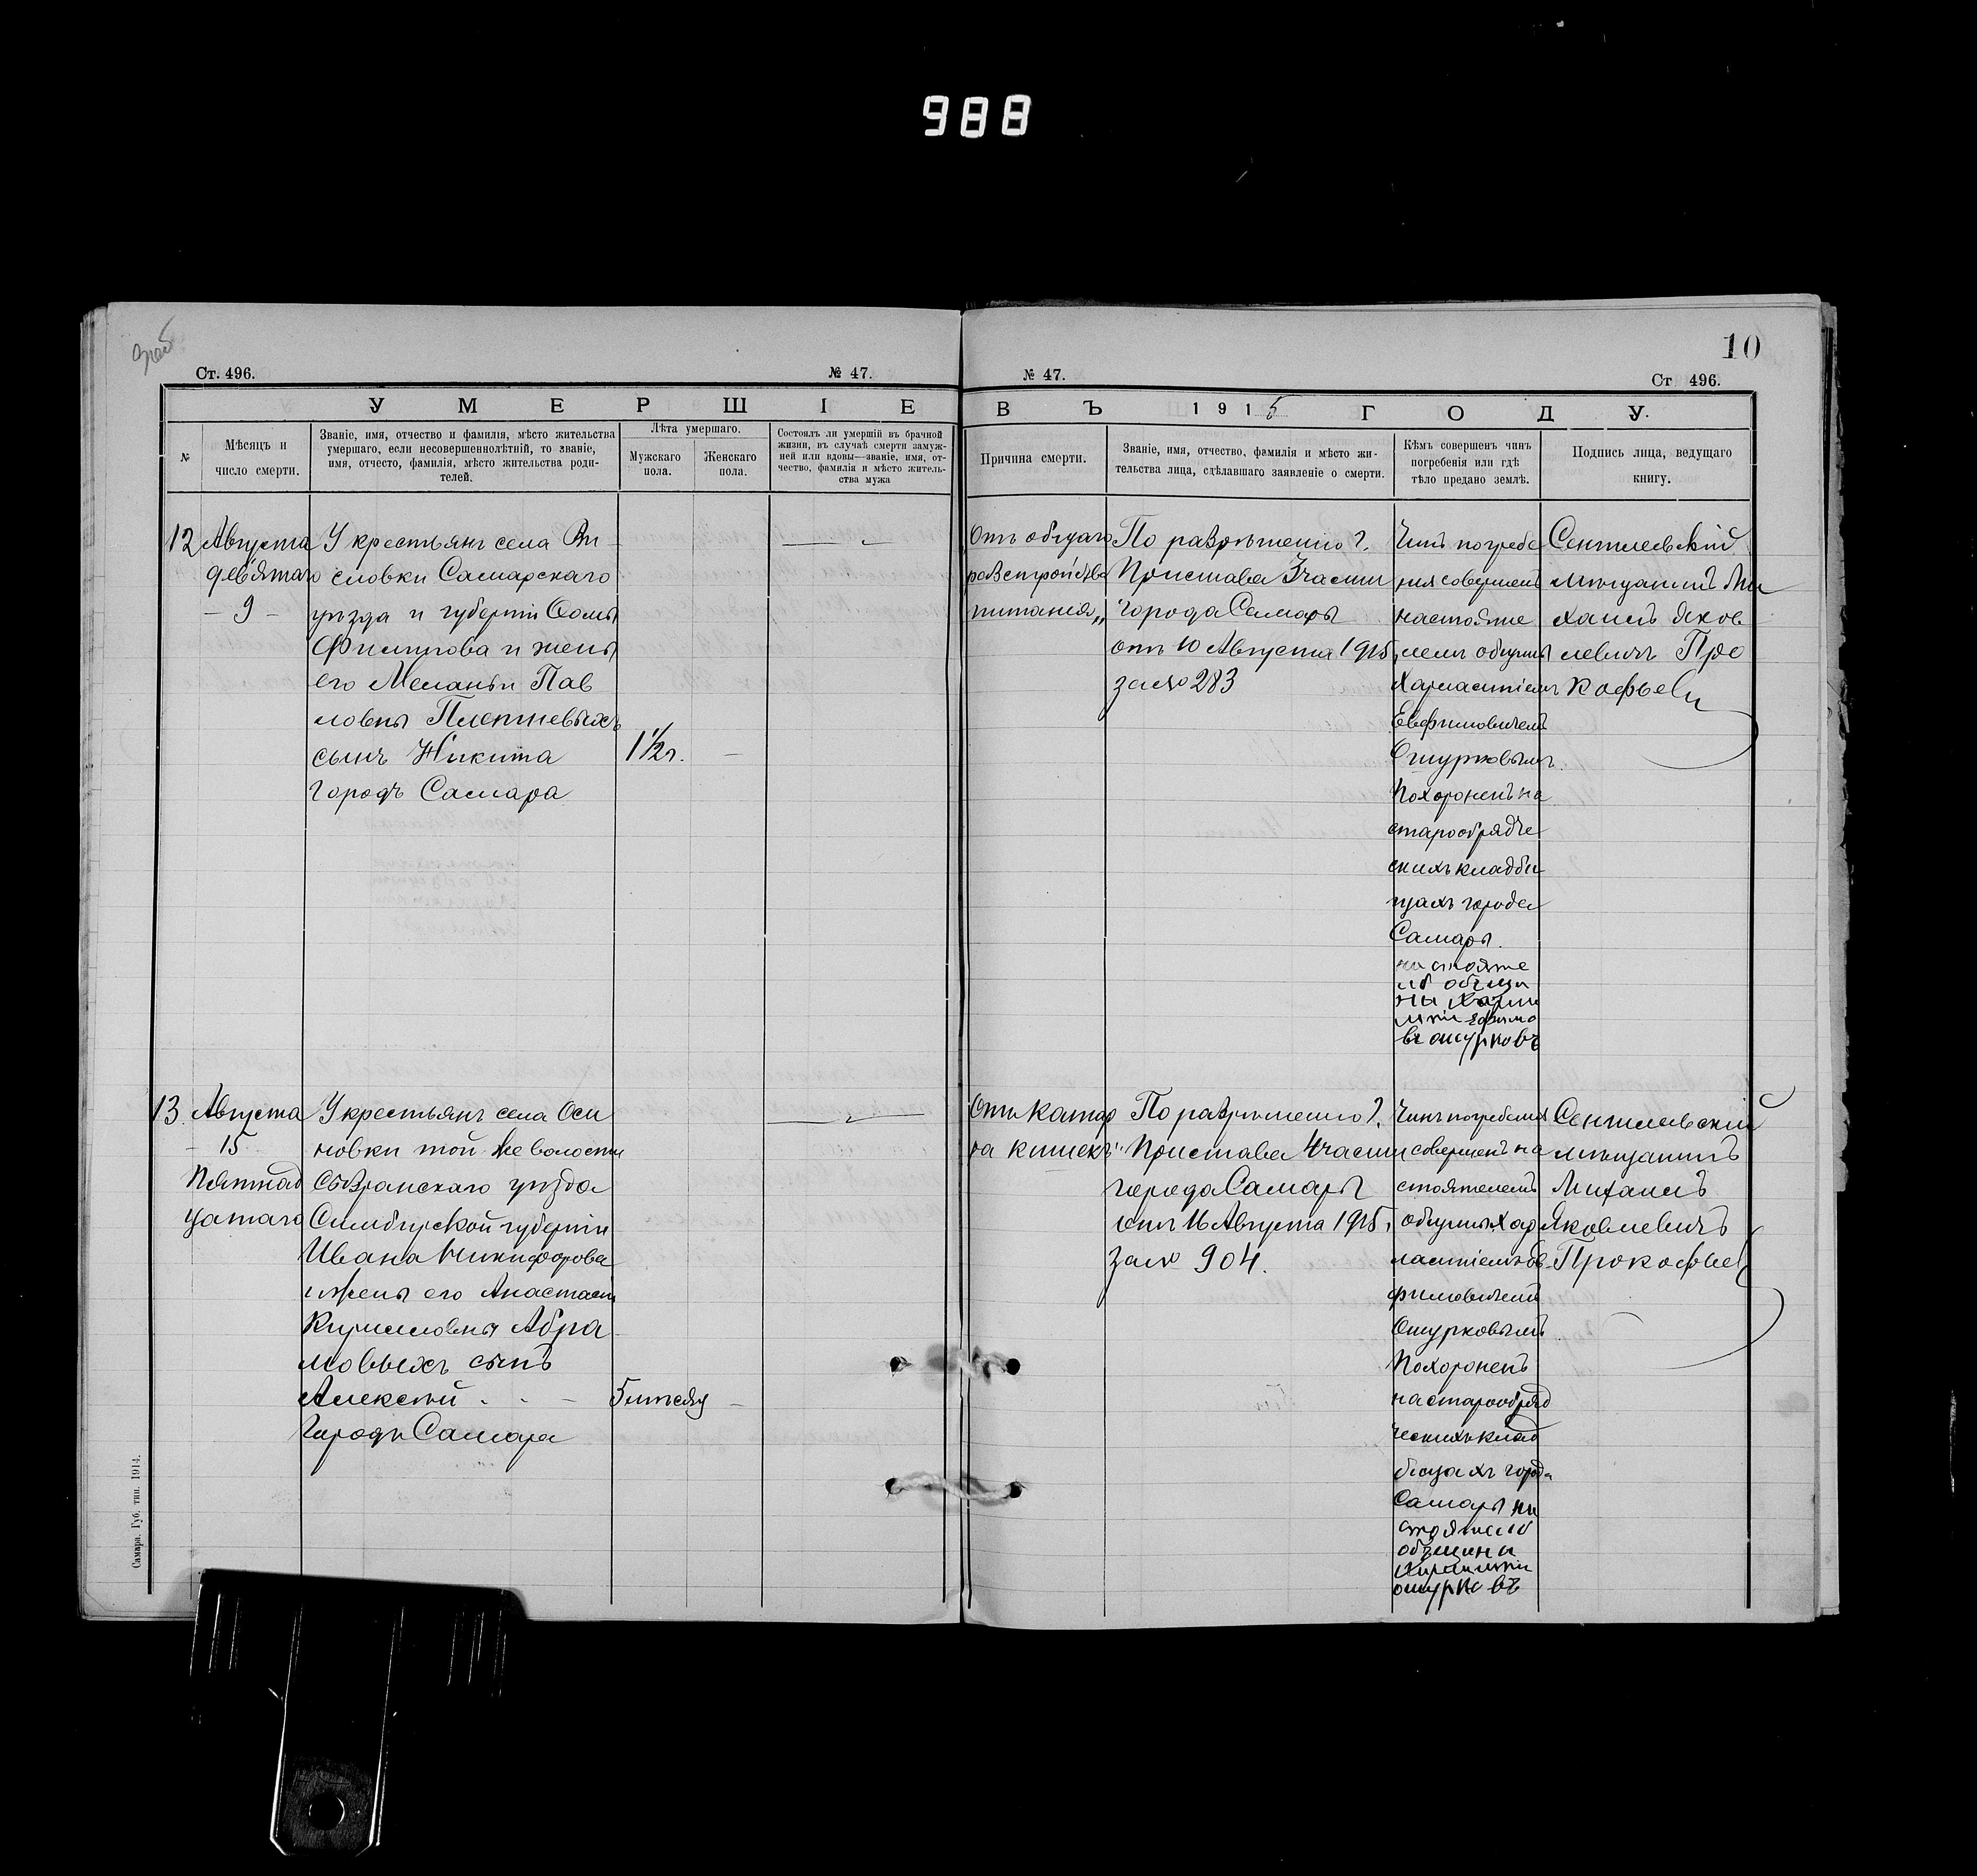 988
10
Ст. 496.
№ 47.
№ 47.
Ст 496.
УМЕРШІЕ
ВЪ 1915 ГОДУ.
№
Мѣсяцъ и
число смерти.
Званіе, имя, отчество и фамилія, мѣсто жительства
умершаго, если несовершеннолѣтній, то званіе,
имя, отчесто, фамилія, мѣсто жительства роди-
телей.
Лѣта умершаго.
Мужскаго
пола.
Женскаго
пола.
Состоялъ ли умершій въ брачной
жизни, въ случаѣ смерти замуж-
ней или вдовы—званіе, имя, от-
чество, фамилія и мѣсто житель-
ства мужа
Причина смерти.
Званіе, имя, отчество, фамилія и мѣсто жи-
тельства лица, сдѣлавшаго заявленіе о смерти.
Кѣмъ совершенъ чинъ
погребенія или гдѣ
тѣло предано землѣ.
Подпись лица, ведущаго
книгу.
12
Августа
девятаго
- 9 -
У крестьянъ села
словки Самарскаго
уѣзда и губерніи Ѳомы
Филиппова и жены
его Меланьи Пав
ловны Плетневыхъ
сынъ Никита
городъ Самара
1 1/2 г.
Отъ общаго
разстройства
питания„
По разрѣшенію г.
Пристава 3 части
города Самары
отъ 10 Августа 1915 г
за № 283
Чинъ погребе
нія совершенъ
настояте
лемъ общины
Харлампіемъ
Евфимовичемъ
Ошурковымъ.
Похороненъ на
старообрядче
скихъ кладби
щахъ города
Самары.
настояте
ль общи
ны
ошурковъ
Сенгилеевскій
мѣщанинъ Ми
хаилъ Яков
левичъ Про
кофьевъ
13.
Августа
- 15
Пятнад
цатаго
У крестьянъ села Оси
новки той же волости
Сызранскаго уѣзда
Симбирской губерніи
Ивана Никифорова
и жены его Анастасіи
Кирилловны Абра
мовыхъ сынъ
Алексѣй
Городъ Самара
5 мѣсяц
Отъ катар
ра кишекъ"
По разрѣшенію г.
Пристава 4 части
города Самары
отъ 16 Августа 1915 г
за № 904.
Чинъ погребенія
совершенъ на
стоятелемъ
общины Хар
лампіемъ Ев
фимовичемъ
Ошурковымъ.
Похороненъ
на старообряд
ческихъ клад
бищахъ города
Самары на
стоятель
общины
ошурковъ
Сенгилеевскій
мѣщанинъ
Михаилъ
Яковлевичъ
Прокофьев
Самара. Губ. тип. 1914.